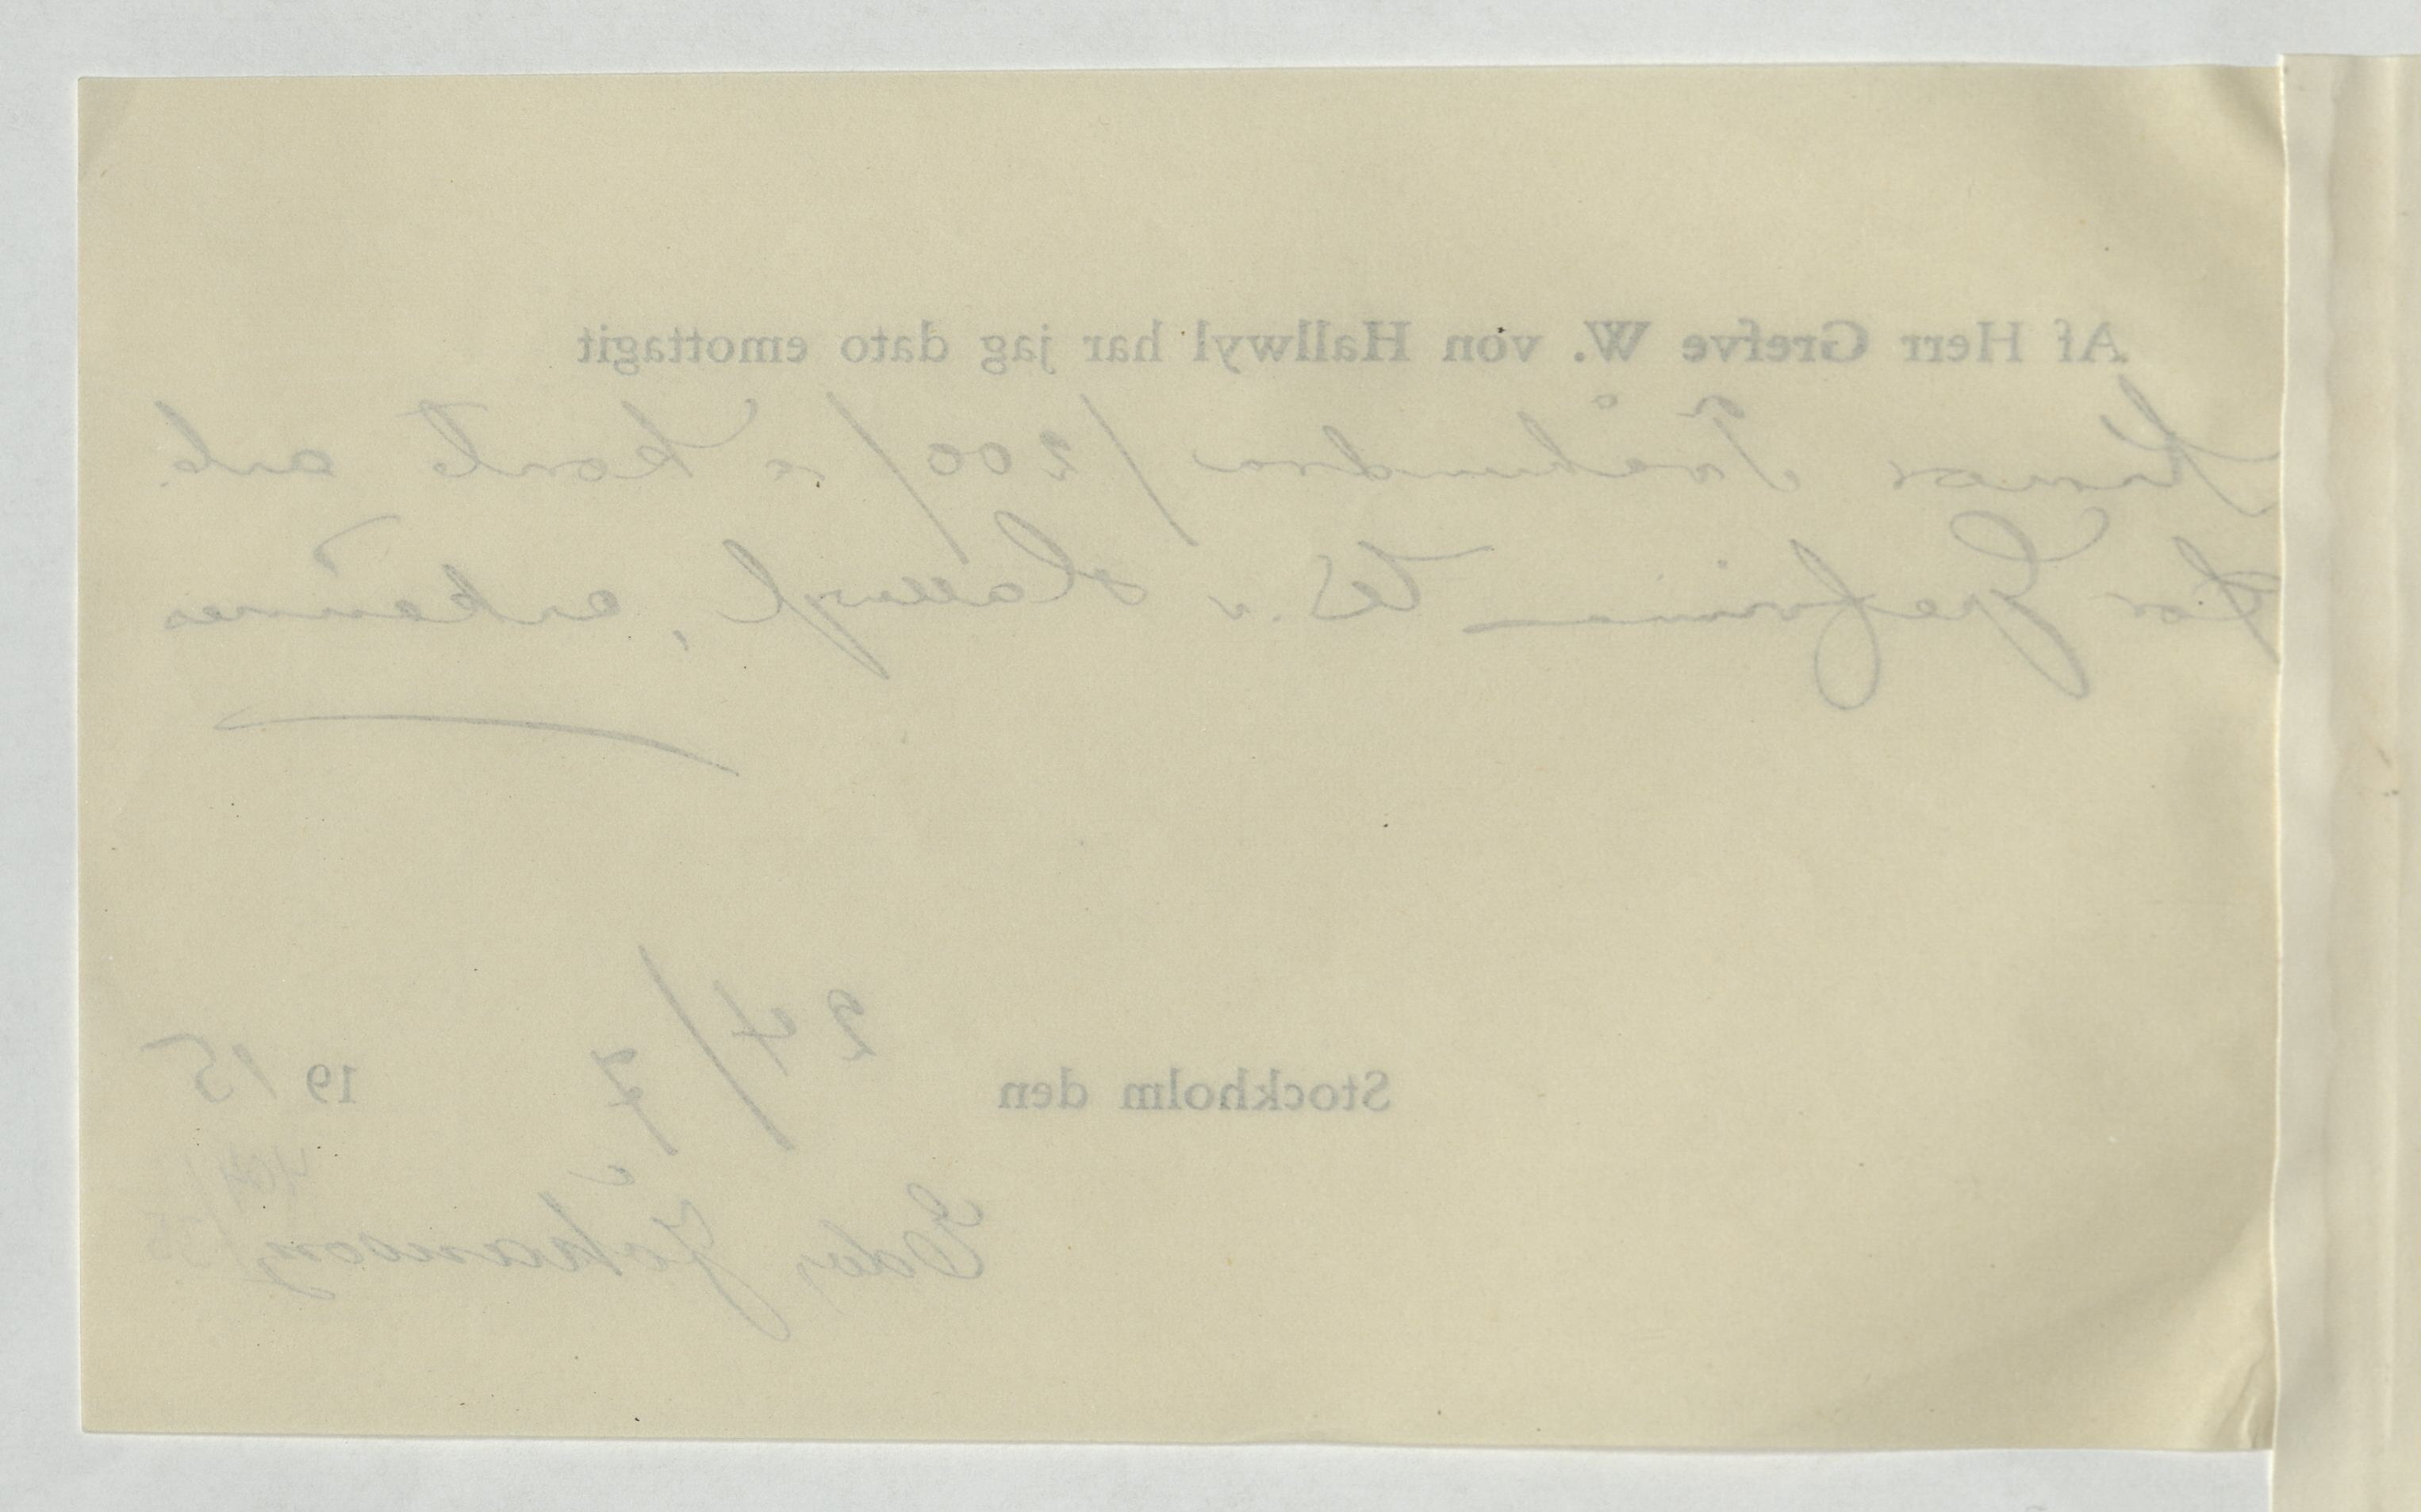 Af Herr Grefve W. von Hallwyl har jag dato emottagit
Kronor Tvåhundra /200/ a konto arb.
för Grefvinnan W. v. Hallwyl, erkännes
Stockholm den 24/7 1915
Johansson